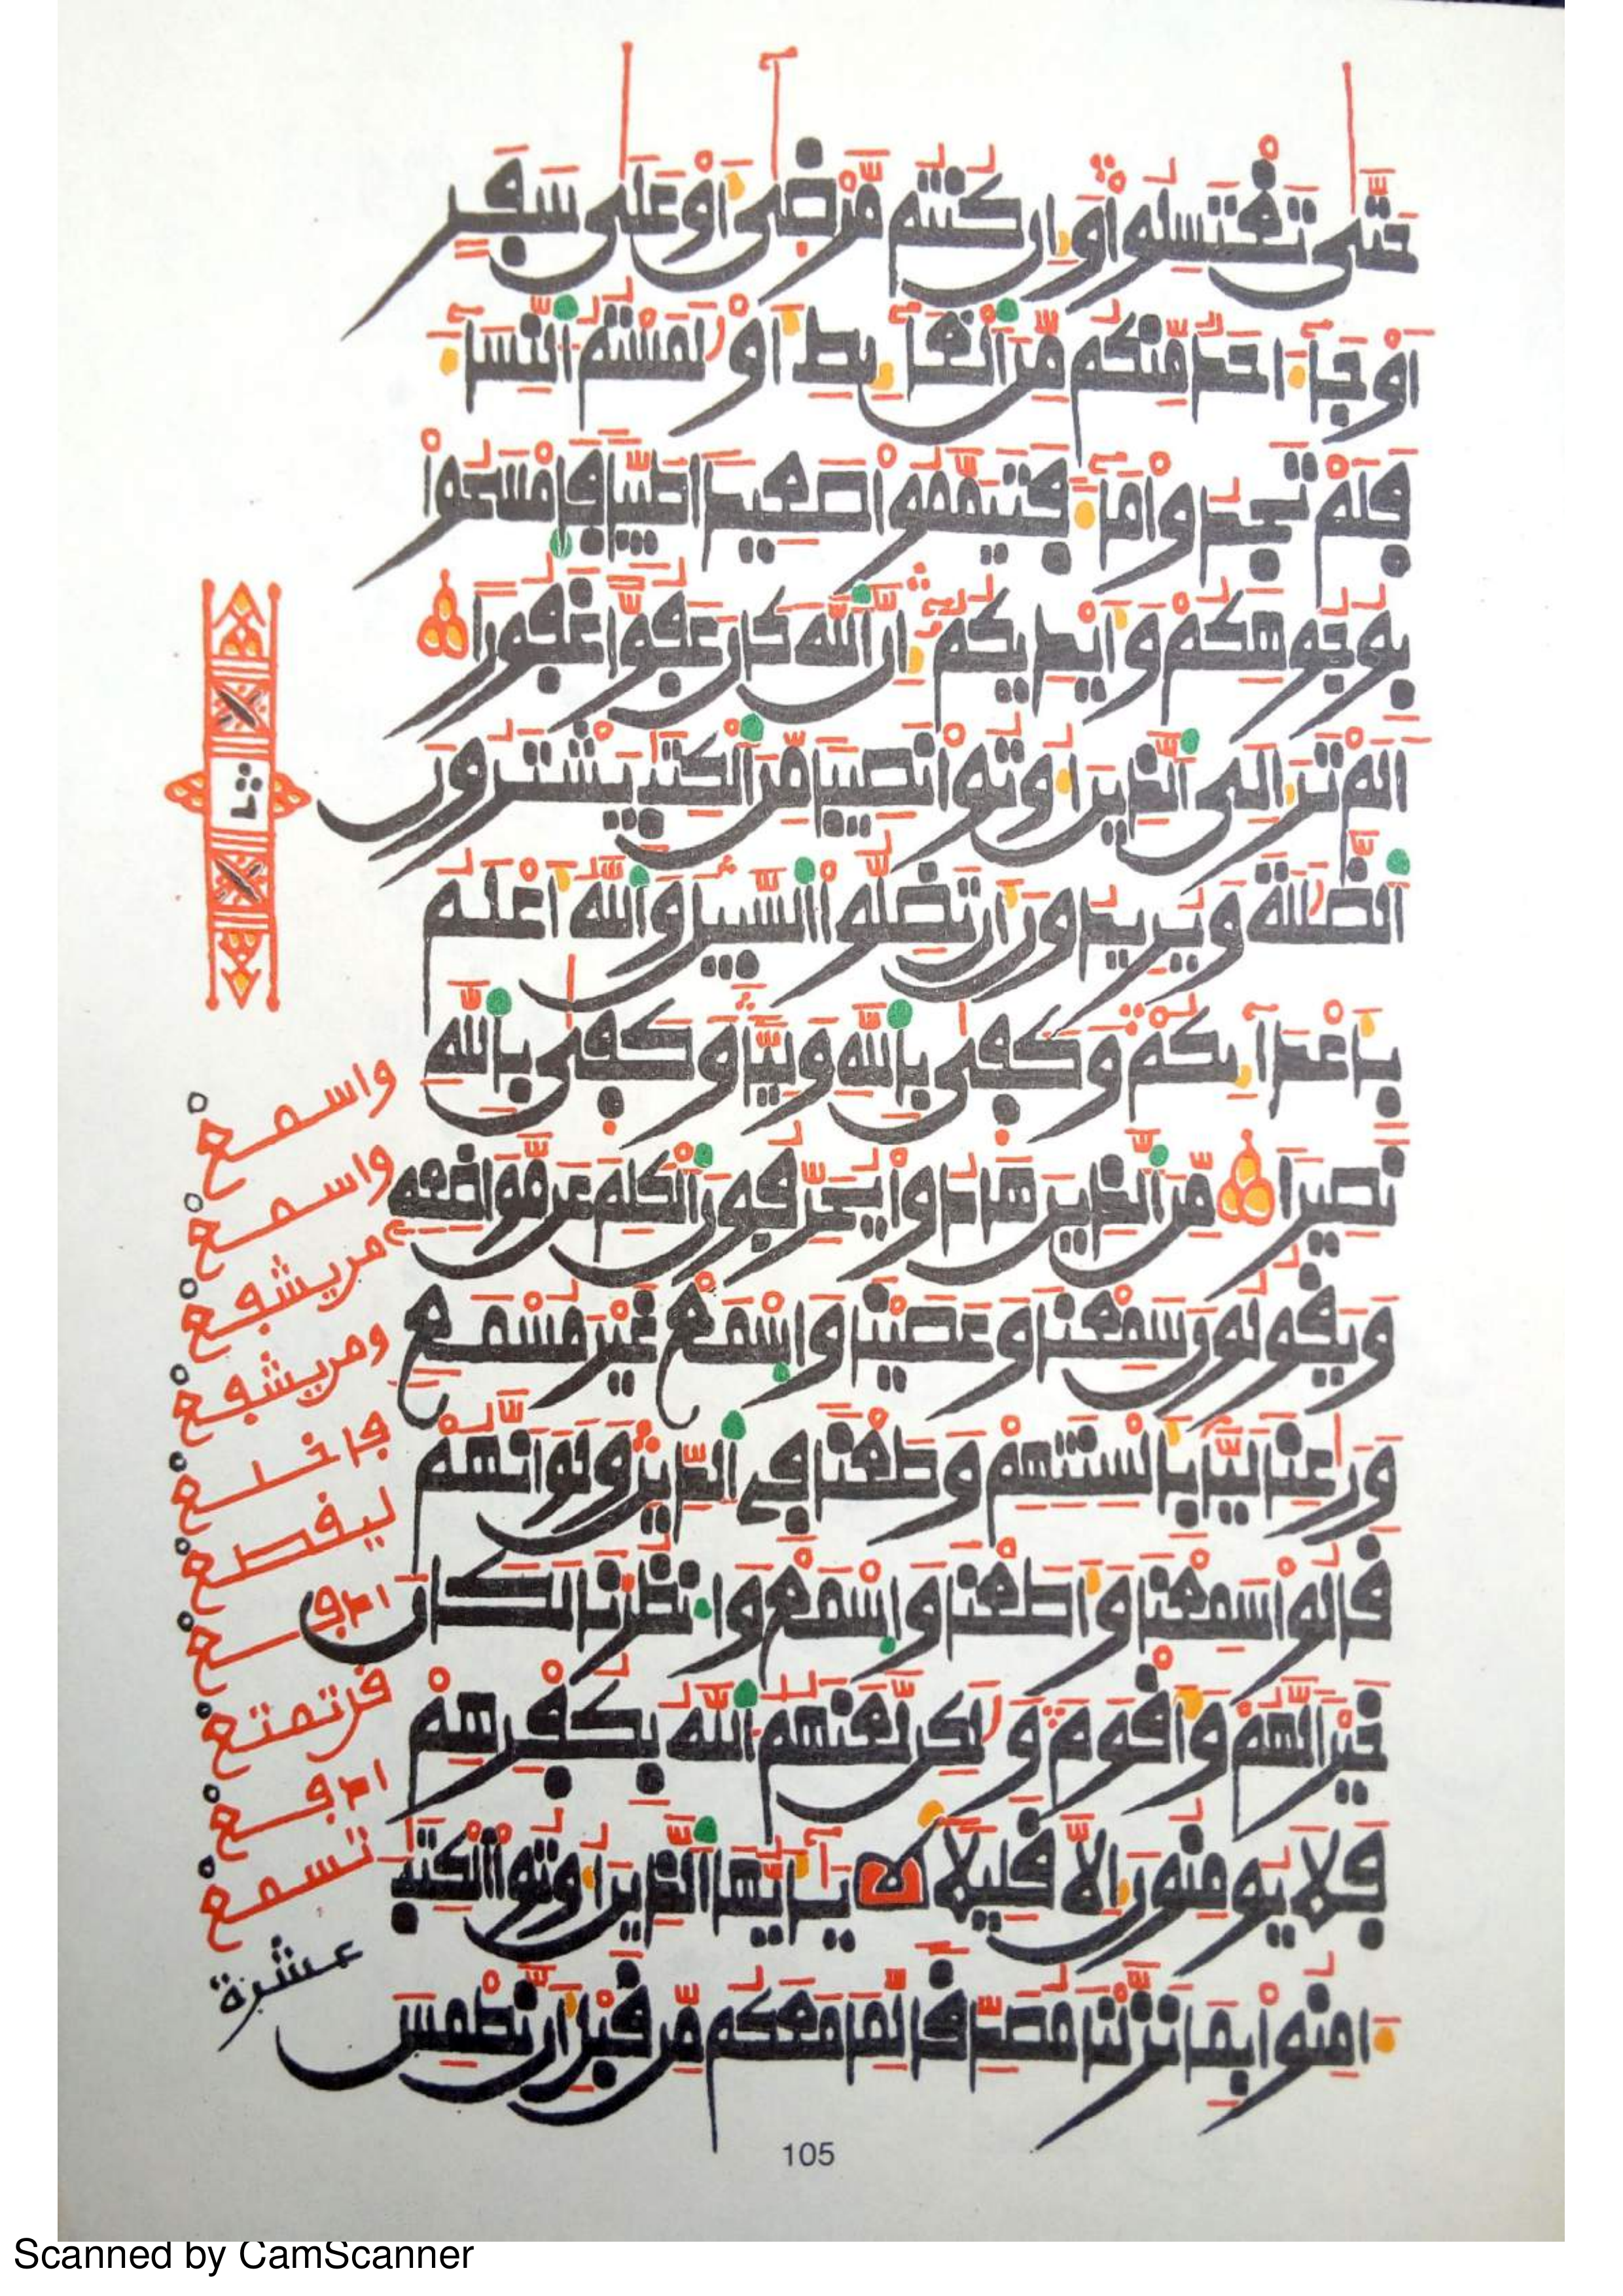 حَتَّىٰ تَغْتَسِلُوا۟ وَإِن كُنتُم مَّرْضَىٰٓ أَوْ عَلَىٰ سَفَرٍ
أَوْ جَآءَ احَدٌ مِّنكُم مِّنَ ٱلْغَآئِطِ أَوْ لَٰمَسْتُمُ ٱلنِّسَآءَ
فَلَمْ تَجِدُوا۟ مَآءً فَتَيَمَّمُوا۟ صَعِيدًا طَيِّبًا فَٱمْسَحُوا۟
بِوُجُوهِكُمْ وَأَيْدِيكُمُۥٓ إِنَّ ٱللَّهَ كَانَ عَفُوًّا غَفُورًا
أَلَمْ تَرَ إِلَى ٱلَّذِينَ أُوتُوا۟ نَصِيبًا مِّنَ ٱلْكِتَٰبِ يَشْتَرُونَ
ٱلضَّلَٰلَةَ وَيُرِيدُونَ أَن تَضِلُّوا۟ ٱلسَّبِيلَ وَٱللَّهُ أَعْلَمُ
بِأَعْدَآئِكُمْ وَكَفَىٰ بِٱللَّهِ وَلِيًّا وَكَفَىٰ بِٱللَّهِ
نَصِيرًا مِّنَ ٱلَّذِينَ هَادُوا۟ يُحَرِّفُونَ ٱلْكَلِمَ عَن مَّوَاضِعِهِۦ
وَيَقُولُونَ سَمِعْنَا وَعَصَيْنَا وَٱسْمَعْ غَيْرَ مُسْمَعٍ
وَرَٰعِنَا لَيًّۢا بِأَلْسِنَتِهِمْ وَطَعْنًا فِي ٱلدِّينِ وَلَوَ انَّهُمْ
قَالُوا۟ سَمِعْنَا وَأَطَعْنَا وَٱسْمَعْ وَٱنظُرْنَا لَكَانَ
خَيْرًا لَّهُمْ وَأَقْوَمَ وَلَٰكِن لَّعَنَهُمُ ٱللَّهُ بِكُفْرِهِمْ
فَلَا يُومِنُونَ إِلَّا قَلِيلًا يَٰٓأَيُّهَا ٱلَّذِينَ أُوتُوا۟ ٱلْكِتَٰبَ
ءَامِنُوا۟ بِمَا نَزَّلْنَا مُصَدِّقًا لِّمَا مَعَكُم مِّن قَبْلِ أَن نَّطْمِسَ
واسمع
واسمع
من يشفع
ومن يشفع
فاخلع
ليقطع
ادفع
فن تمتع
ادفع
تسمع
عشرة
105
Scanned by CamScanner